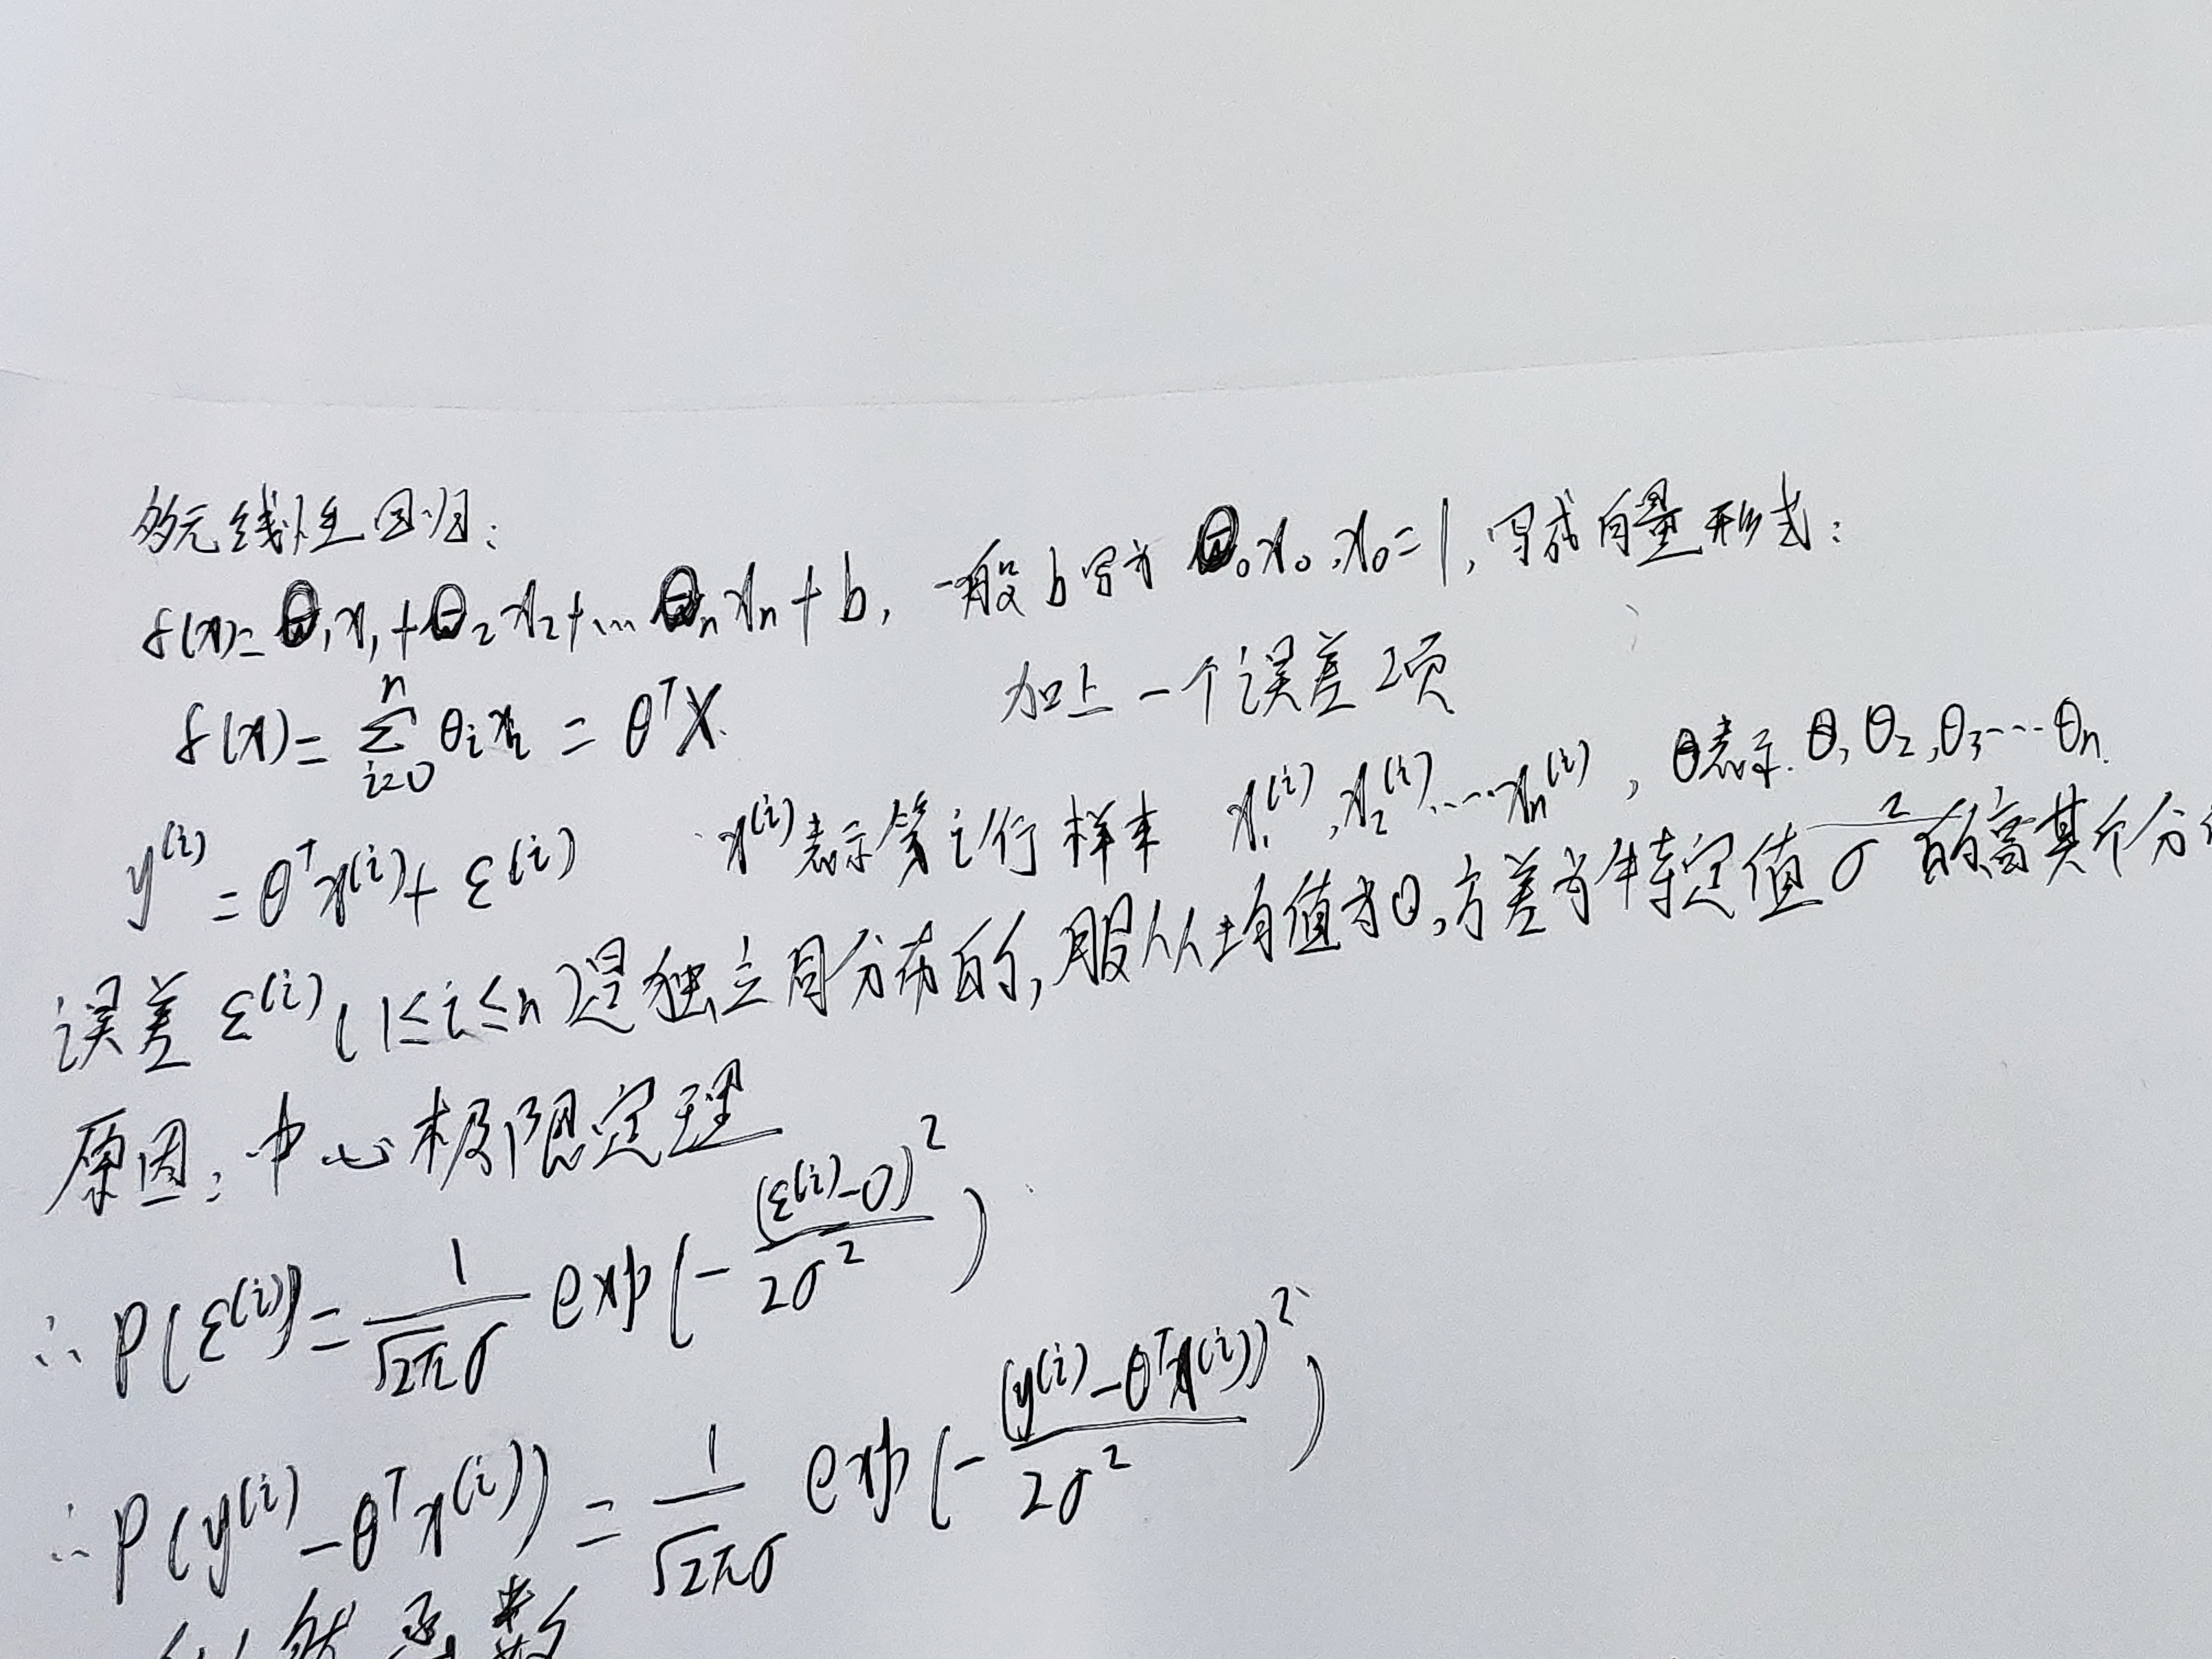 多元线性回归:
f(x)=θ₁x₁+θ₂x₂+...θₙxₙ+b, 一般b写为θ₀x₀,x₀=1,写成向量形式:
f(x)=∑ⁿᵢ₌₀θᵢxᵢ=θᵀX. 加上一个误差项
y⁽ⁱ⁾=θᵀx⁽ⁱ⁾+ε⁽ⁱ⁾ x⁽ⁱ⁾表示第i行样本 x₁⁽ⁱ⁾,x₂⁽ⁱ⁾...xₙ⁽ⁱ⁾, θ表示.θ₁θ₂,θ₃...θₙ.
误差ε⁽ⁱ⁾(1≤i≤n)是独立同分布的,服从均值为0,方差为特定值σ²的高其个分
原因:中心极限定理
∴P(ε⁽ⁱ⁾)=1/(√2πσ) exp(-(ε⁽ⁱ⁾-0)²/2σ²)
∴P(y⁽ⁱ⁾-θᵀx⁽ⁱ⁾)=1/(√2πσ) exp(-(y⁽ⁱ⁾-θᵀx⁽ⁱ⁾)²/2σ²)
似然函数